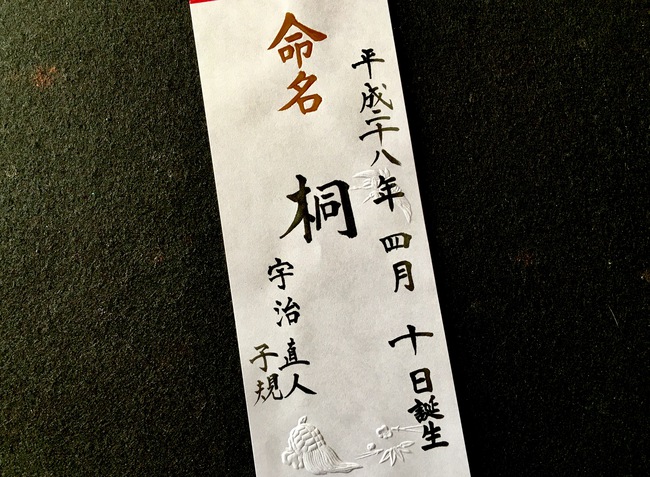 平成二十八年四月十日誕生
命名
桐
宇治
直人
子規